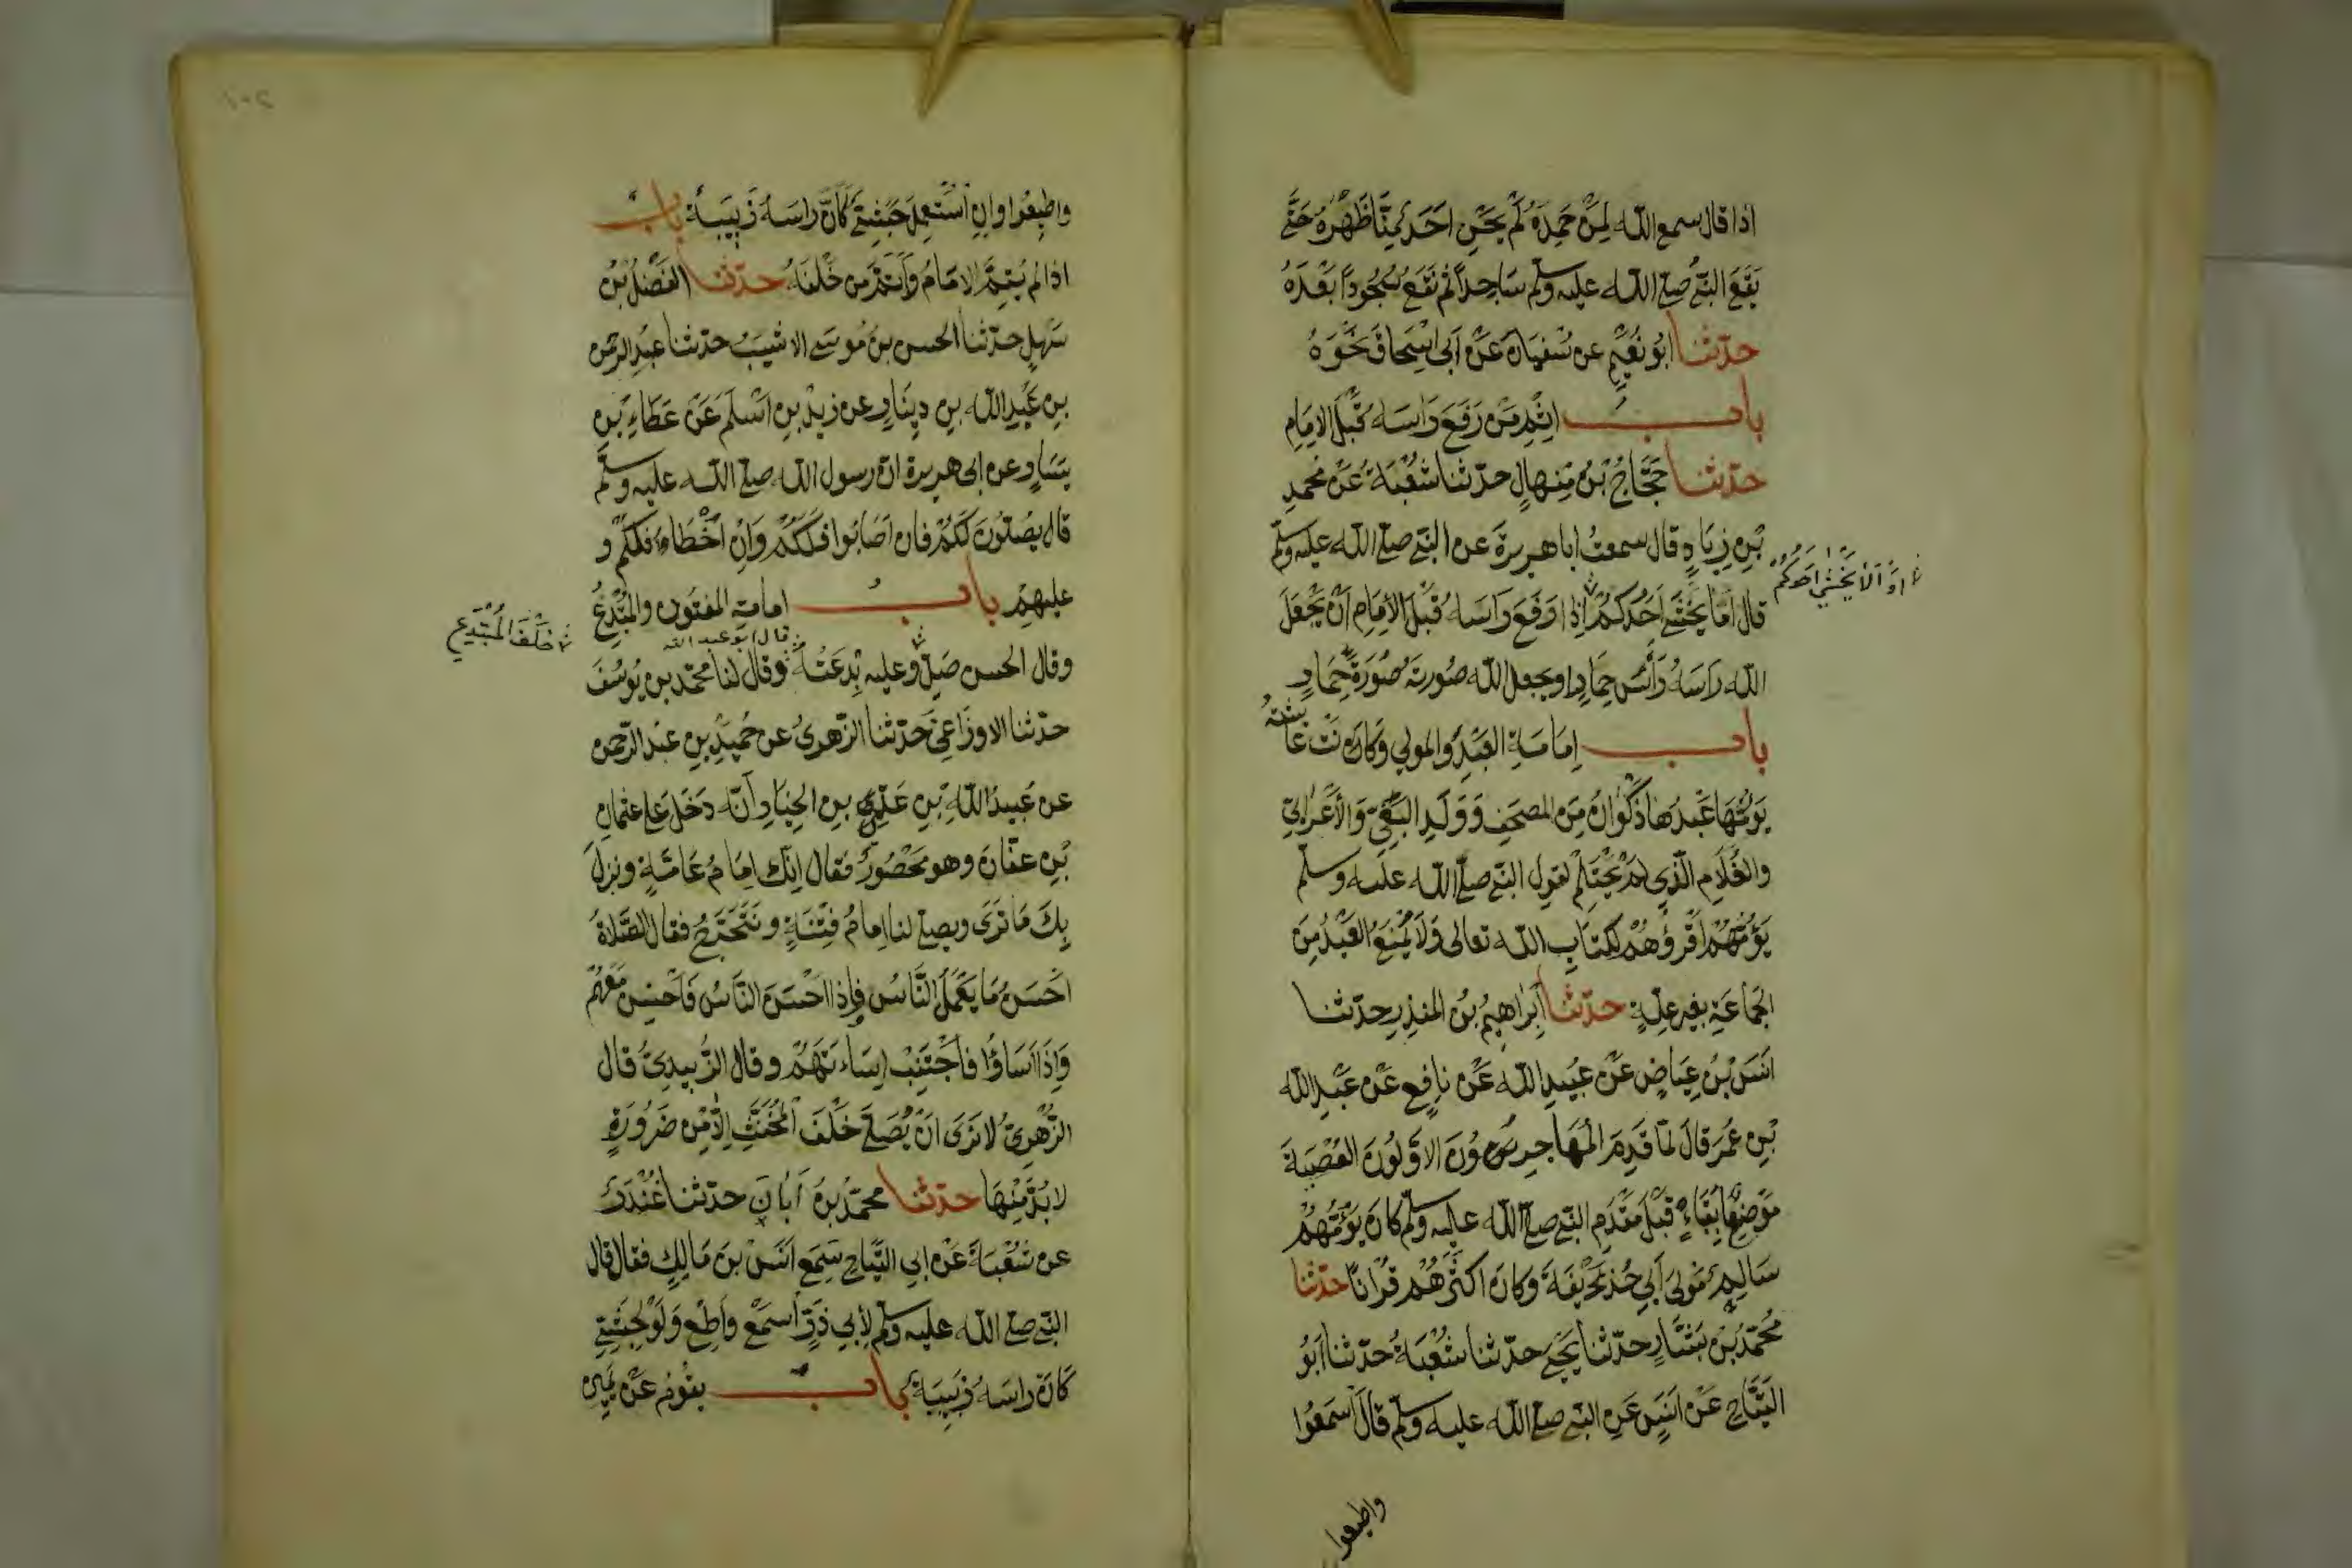 اذا قال سمع الله لِمَنْ حَمِدَهُ لَمْ يَحْنِ احَدٌ مِنَّا ظَهْرَهُ حَتَّى
يَقَعَ النَّبِيُّ صلى الله عليه وسلم سَاجِدًا ثُمَّ نَقَعُ سُجُودًا بَعْدَهُ
حدّثنا ابُو نُعَيْمٍ عن سُفْيَانَ عَنْ ابى اسْحَاقَ نَحْوَهُ
باب اِثْمِ مَنْ رَفَعَ رَاسَهُ قَبْلَ الامَامِ
حدّثنا حَجَّاجُ بْنُ مِنهالٍ حدّثنا شُعْبَةُ عَنْ محمدِ
بْنِ زِيَادٍ قال سمعتُ ابا هريرةَ عن النبى صلى الله عليه وسلم
اوَ اَلَا يَخْشَى احدكُمْ
قال اَمَا يَخْشَى اَحَدُكُمْ اِذا رَفَعَ رَاسَهُ قَبْلَ الاِمَامِ اَنْ يَجْعَلَ
الله رَاسَهُ رَأْسَ حِمَارٍ او يجعل الله صُورتَهُ صُورَةَ حِمَارٍ
باب اِمَامَةِ العَبْدِ والمولى وَكَانَتْ عَائشةُ
يَؤُمُّهَا عَبْدُهَا ذَكْوَانُ مِنَ المصحَفِ وَوَلَدِ البَغِيِّ وَالْأَعْرَابِيِّ
والغُلَامِ الَّذِي لَمْ يَحْتَلِمْ لقول النبى صلى الله عليه وسلم
يَؤُمُّهُمْ اَقْرَؤُهُمْ لِكتَابِ الله تعالى وَلَا يُمْنَعُ العَبْدُ مِنَ
الجَمَاعَةِ بغيرِ عِلّةٍ حدّثنا اِبْرَاهِيمُ بْنُ المنذِرِ حدّثنا
اَنَسُ بْنُ عِيَاضٍ عَنْ عُبَيدِ الله عَنْ نافِعٍ عَنْ عَبْدِ الله
بْنِ عُمَرَ قالَ لمّا قَدِمَ المُهَاجِرُونَ الاَوّلُونَ العُصْبَةَ
مَوْضِعًا بِقُبَاءٍ قَبْلَ مَقْدَمِ النبى صلى الله عليه وسلم كانَ يَؤُمُّهُمْ
سَالِمٌ مَوْلَى أَبِي حُذَيْفَةَ وَكانَ اكثَرَهُمْ قُرْانًا حدّثنا
مُحَمّدُ بْنُ بَشَّارٍ حدّثنا يَحْيَى حدّثنا شُعْبَةُ حدّثنا ابُو
التَّيَّاحِ عَنْ انَسٍ عَنِ النبى صلى الله عليه وسلم قالَ اَسْمَعُوا
واطيعوا
واطِيعُوا وانِ اسْتُعْمِلَ حَبَشِيٌّ كَأَنَّ رَاسَهُ زَبِيبَةٌ بابٌ
اذا لم يُتِمَّ الامَامُ وَاَتَمَّ مَنْ خَلْفَهُ حدّثنا الفَضْلُ بْنُ
سَهْلٍ حدّثنا الحسن بنُ مُوسَى الاشيَبُ حدّثنا عبدُ الرحمن
بنِ عَبْدِ الله بنِ دِينَارٍ عن زيدِ بنِ اَسْلَمَ عَنْ عَطَاءِ بْنِ
يَسَارٍ عن ابى هريرة انّ رسول الله صلى الله عليه وسلم
قال يصلّونَ لَكُمْ فان اَصَابُوا فلَكُمْ وَاِنْ اَخْطَاءُوا فلكُمْ و
عليهِم بابُ امامة المفتون والمُبْتَدِعِ
خَلْفَ المُبْتَدِعِ
قال ابو عبد الله
وقال الحسن صَلِّ وعليه بِدعَتُهُ وقال لنا محمّد بن يُوسُفَ
حدّثنا الاوزَاعِيُّ حَدّثنا الزّهرىُ عن حُميدِ بنِ عبدِ الرّحمن
عن عُبيدِ اللّهِ بْنِ عَدِيّ بنِ الخِيَارِ اَنّهُ دَخَلَ على عثمان
بْنِ عفّانَ وهو مَحْصُورٌ فقال اِنّكَ امَامُ عَامّةٍ ونزلَ
بِكَ مَا تَرَى ويصلى لنا اِمامُ فِتْنَةٍ ونَتَحَرَّجُ فقال الصَّلاةُ
اَحْسَنُ مَا يَعْمَلُ النَّاسُ فاِذا اَحْسَنَ النَّاسُ فَاَحْسِنْ مَعَهُمْ
وَاِذَا اَسَاؤُا فَاجْتَنِبْ اِسَاءَتَهُمْ وقال الزُّبيدِيُّ قال
الزّهرىُّ لا نَرَى انْ يُصَلَّى خَلْفَ المُخَنَّثِ اِلّا مِنْ ضَرُورَةٍ
لا بُدَّ مِنْهَا حدّثنا محمّدُ بنُ اَبَانَ حدّثنا غُنْدَرٌ
عن شُعْبَةَ عَنْ ابِي التّيّاحِ سَمِعَ اَنَسَ بنَ مَالِكٍ فقال قال
النبى صلى الله عليه وسلم لِأَبِي ذَرٍّ اَسْمَعْ وَاَطِعْ وَلَوْ لِحَبَشِيٍّ
كَانَّ راسَهُ زَبِيبَةٌ باب يقُومُ عَنْ يَمِينِ